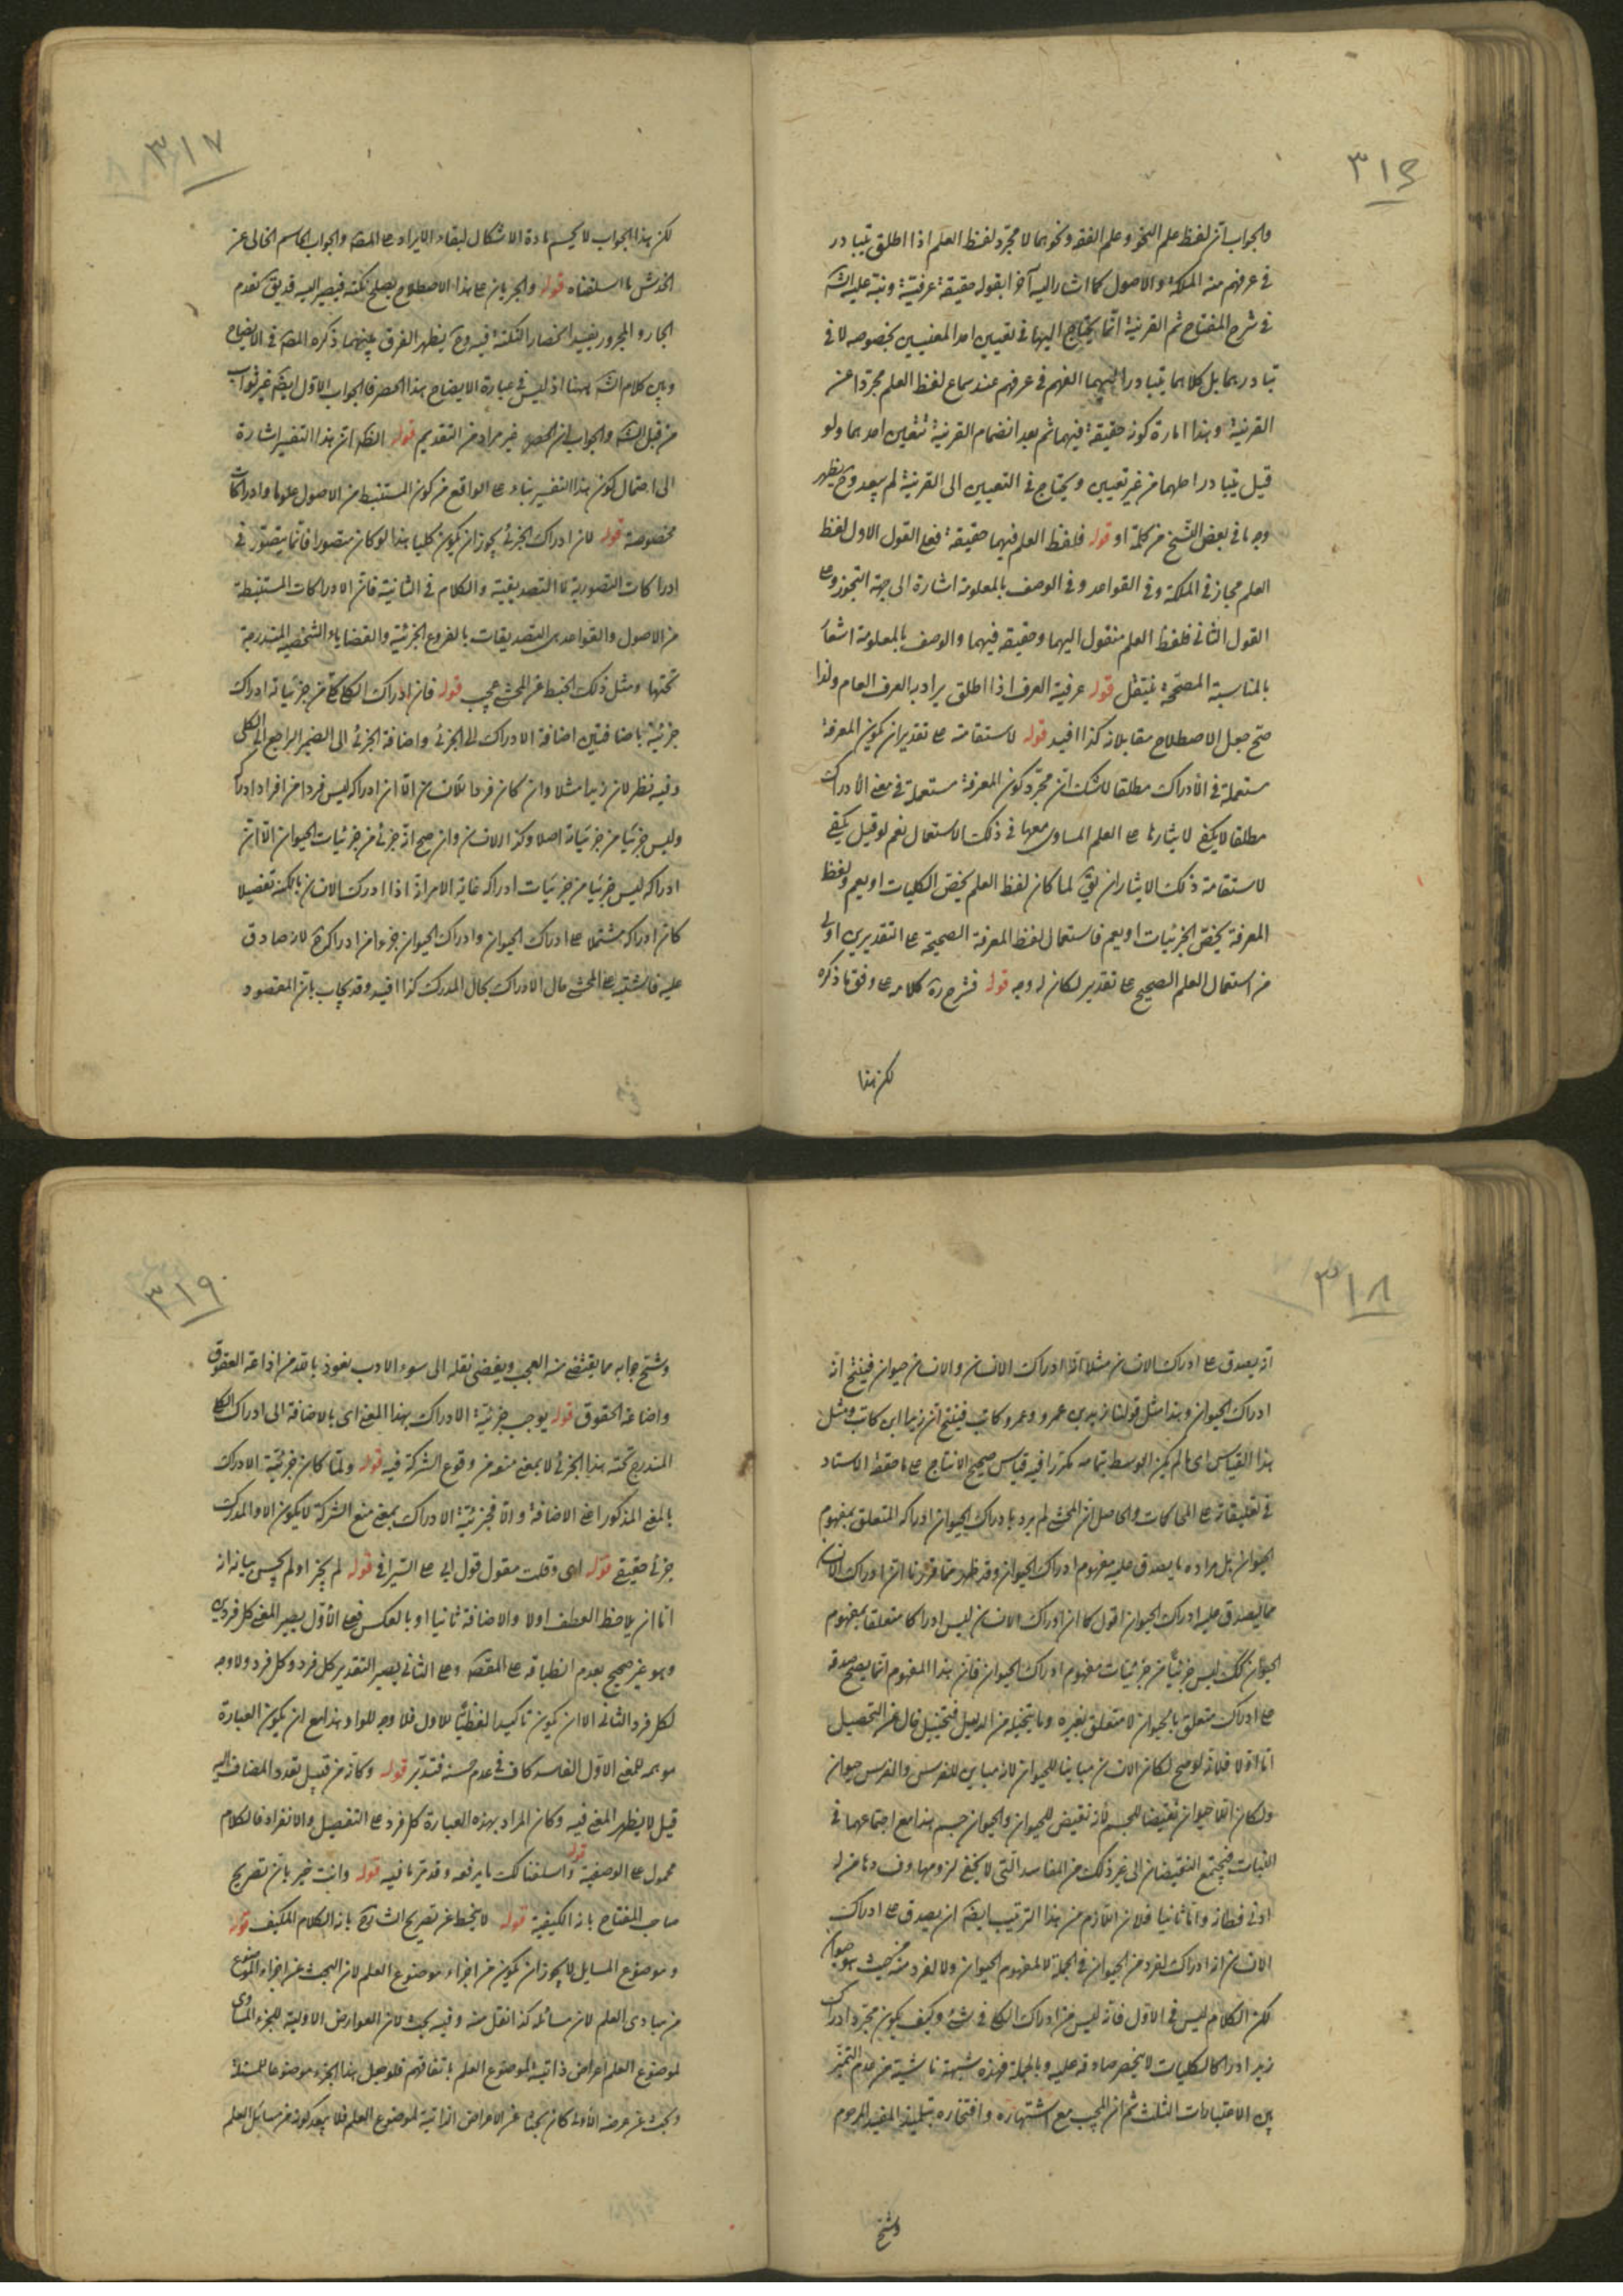 ٣١٦
والجواب ان لفظ علم النحو وعلم الفقه ونحوهما لا مجرد لفظ العلم اذا اطلق يتبادر
في عرفهم منه الملكة والاصول كما اشار اليه آخرا بقوله حقيقة عرفية ونبه عليه الش
في شرح المفتاح ثم القرينة انما يحتاج اليها في تعيين احد المعنيين بخصوصه لا في
تبادرهما بل كلاهما يتبادر اليهما الفهم في عرفهم عند سماع لفظ العلم مجردا عن
القرينة وهذا امارة كونه حقيقة فيهما ثم بعد انضمام القرينة تتعين احدهما ولو
قيل يتبادر احدهما من غير تعيين ويحتاج في التعيين الى القرينة لم يبعد وح يظهر
وجه ما في بعض النسخ من كلمة او قوله فلفظ العلم فيهما حقيقة فعلى القول الاول لفظ
العلم مجاز في الملكة وفي القواعد وفي الوصف بالمعلومة اشارة الى جهة التجوز وعلى
القول الثاني فلفظ العلم منقول اليهما وحقيقة فيهما والوصف بالمعلومة اشعار
بالمناسبة المصححة للنقل قوله عرفية العرف اذا اطلق يراد به العرف العام ولذا
صح جعل الاصطلاح مقابلا له كذا افيد قوله لاستقامته على تقدير ان يكون المعرفة
مستعملة في الادراك مطلقا لا شك ان مجرد كون المعرفة مستعملة في معنى الادراك
مطلقا لا يكفي لايثارها على العلم المساوي معها في ذلك الاستعمال نعم لو قيل يكفي
لاستقامة ذلك الايثار ان يق لما كان لفظ العلم يخص الكليات او يعم ولفظ
المعرفة يخص الجزئيات او يعم فاستعمال لفظ المعرفة الصحيحة على التقديرين اولى
من استعمال العلم الصحيح على تقدير لكان له وجه قوله فشرح ره كلامه على وفق ما ذكره
لكن هذا
٣١٧
لكن هذا الجواب لا يحسم مادة الاشكال لبقاء الايراد على المص والجواب الحاسم الخالي عن
الخدش ما اسلفناه قوله والجريان على هذا الاصطلاح يصلح نكتة فيصير اليه قد يق تقدم
الجار والمجرور يفيد انحصار النكتة فيه وح يظهر الفرق بينهما ذكره المص في الايضاح
وبين كلام الش ههنا اذ ليس في عبارة الايضاح هذا الحصر فالجواب الاول ايضا غير ثواب
من قبل الش والجواب ان الحصر غير مراد من التقديم قوله الظ ان هذا التفسير اشارة
الى احتمال كون هذا التفسير بناء على الواقع من كون المستنبط من الاصول علوما وادراكات
مخصوصة قوله لان ادراك الجزئي يجوز ان يكون كليا هذا لو كان متصورا فانما يتصور في
ادراكات التصورية لا التصديقية والكلام في الثانية فان الادراكات المستنبطة
من الاصول والقواعد هي التصديقات بالفروع الجزئية والقضايا والشخصية المندرجة
تحتها ومثل ذلك الخبط عن المحشي عجيب قوله فان ادراك الكلي كلي من جزئياته ادراك
جزئيه باضافتين اضافة الادراك الى الجزئي واضافة الجزئي الى الضمير الراجع الى الكلي
وفيه نظر لان زيدا مثلا وان كان فردا للانسان الا ان ادراكه ليس فردا من افراد ادراك
وليس جزئيا من جزئياته اصلا وكذا الانسان وان صح انه جزئي من جزئيات الحيوان الا ان
ادراكه ليس جزئيا من جزئيات ادراكه غاية الامر انه اذا ادرك الانسان بالكنه تفصيلا
كان ادراكه مشتملا على ادراك الحيوان وادراك الحيوان جزء من ادراكه لا انه صادق
عليه فاشتبه على المحشي حال الادراك بحال المدرك كذا افيد وقد يجاب بان المقصود
٣١٨
انه يصدق على ادراك الانسان مثلا انه ادراك الانسان والانسان حيوان فينتج انه
ادراك الحيوان وهذا مثل قولنا زيد بن عمرو وعمرو كاتب فينتج ان زيدا ابن كاتب ومثل
هذا القياس اى ما لم يكن الوسط بتمامه مكررا فيه قياس صحيح الانتاج على ما حققه الاستاد
في تعليقاته على المحاكات والحاصل ان المحشي لم يرد بادراك الحيوان ادراكه المتعلق بمفهوم
الحيوان بل مراده ما يصدق عليه مفهوم ادراك الحيوان وقد ظهر مما قررنا ان ادراك الانسان
مما يصدق عليه ادراك الحيوان اقول كما ان ادراك الانسان ليس ادراكا متعلقا بمفهوم
الحيوان كك ليس جزئيا من جزئيات مفهوم ادراك الحيوان فان هذا المفهوم انما يصح صدقه
على ادراك متعلق بالحيوان لا متعلق بغيره وما يتخيل من الدليل فتخييل خال عن التحصيل
اما اولا فلانه لو صح لكان الانسان مباينا للحيوان لانه مباين للفرس والفرس حيوان
ولكان اللاحيوان نقيضا للجسم لانه نقيض للحيوان والحيوان جسم هذا مع اجتماعهما في
النبات فيجتمع النقيضان الى غير ذلك من المفاسد التي لا يخفى لزومها وفسادها من له
ادنى فطانة واما ثانيا فلان اللازم من هذا الترتيب ايضا ان يصدق على ادراك
الانسان انه ادراك لفرد من الحيوان في الجملة لا لمفهوم الحيوان ولا لفرد منه من حيث هو حيوان
لكن الكلام ليس في الاول فانه ليس من ادراك الكلي في شئ وكيف يكون مجرد ادراك
زيد ادراكا لكليات لا ينحصر صادقة عليه وبالجملة فهذه شبهة ناشية من عدم التميز
بين الاعتبارات الثلث ثم ان المجيب مع اشتهاره وافتخاره بتلمذ المفيد المرحوم
وشنع
٣١٩
وشنع جوابه مما يقتضي منه العجب ويفضي نقله الى سوء الادب نعوذ بالله من اذاعة العقوق
واضاعة الحقوق قوله يوجب جزئية الادراك بهذا المعنى اى بالاضافة الى ادراك الكلي
المندرج تحته هذا الجزئي لا بمعنى منعه من وقوع الشركة فيه قوله ولما كان جزئية الادراك
بالمعنى المذكور اعني الاضافة والا فجزئية الادراك بمعنى منع الشركة لا يكون الا والمدرك
جزئي حقيقي قوله اى وقلت مقول قول ابي على السيرافي قوله لم يجز او لم يحسن بيانه انه
اما ان يلاحظ العطف اولا والاضافة ثانيا او بالعكس فعلى الاول يصير المعنى كل فردين
وهو غير صحيح بعدم انطباقه على المقصود وعلى الثاني يصير التقدير كل فرد وكل فرد ولا وجه
لكل فرد الثاني الا ان يكون تاكيدا لفظيا للاول فلا وجه للواو هذا مع ان يكون العبارة
موهمه للمعنى الاول الفاسد كاف في عدم حسنه فتدبر قوله وكانه من قبيل تعدد المضاف اليه
قيل لا يظهر المعنى فيه وكان المراد بهذه العبارة كل فرد على التفصيل والانفراد فالكلام
محمول على الوصفية قوله واسلفنا لك ما يرفعه وقد مر ما فيه قوله وانت خبير بان تصريح
صاحب المفتاح بانه الكيفية قوله لا يخبط عن تصريح الشارح بانه الكلام المكيف قوله
وموضوع المسايل لا يجوز ان يكون من اجزاء موضوع العلم لان البحث عن اجزاء الموضوع
من مبادى العلم لا من مسائله كذا نقل منه وفيه بحث لان العوارض الاولية للجزء المساوى
لموضوع العلم اعراض ذاتية لموضوع العلم باتفاقهم فلو جعل هذا الجزء موضوعا للمسئلة
وبحث عن عرضه الاولى كان بحثا عن الاعراض الذاتية لموضوع العلم فلا يبعد كونه من مسايل العلم